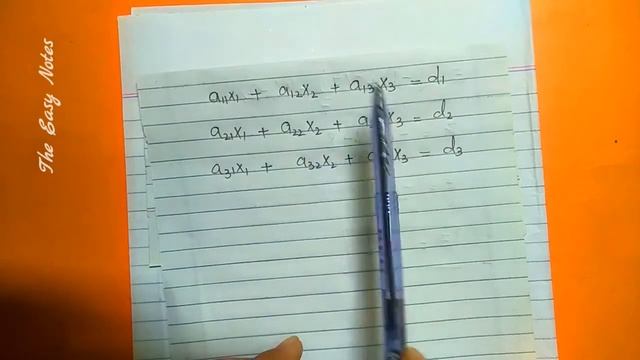 The Easy Notes
a₁₁x₁ + a₁₂x₂ + a₁₃x₃ = d₁
a₂₁x₁ + a₂₂x₂ + a x₃ = d₂
a₃₁x₁ + a₃₂x₂ + x₃ = d₃